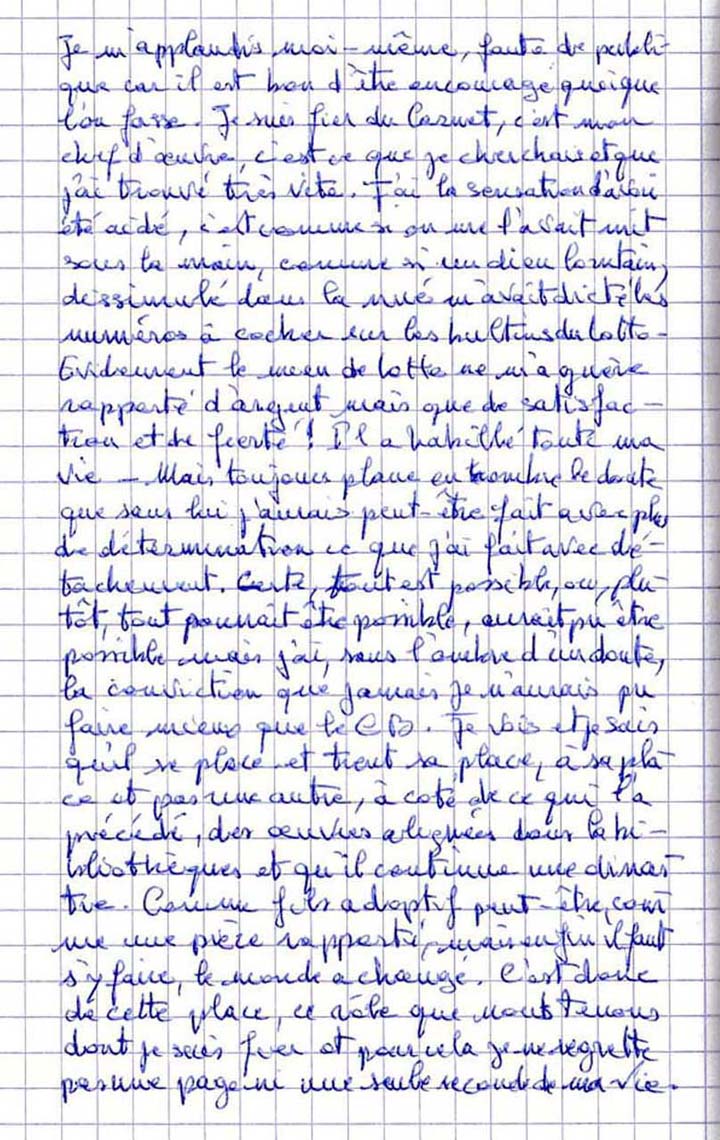 Je m'applaudis moi-même, faute de publi-
que car il est bon d'être encouragé quoique
l'on fasse. Je suis fier du Carnet, c'est mon
chef d'œuvre, c'est ce que je cherchais et que
j'ai trouvé très vite. J'ai la sensation d'avoir
été aidé, c'est comme si on me l'avait mit
sous la main, comme si un dieu lointain,
dissimulé dans la nué m'avait dicté les
numéros à cocher sur les bultins du lotto.
Evidemment le mien de lotto ne m'a guère
rapporté d'argent mais que de satisfac-
tion et de fierté ! Il a habillé toute ma
vie - Mais toujours plane en trombre le doute
que sans lui j'aurais peut-être fait avec plus
de détermination ce que j'ai fait avec dé-
tachement. Certe, tout est possible, ou, plu-
tôt, tout pourrait être possible, aurait pu être
possible mais j'ai, sans l'ombre d'un doute,
la conviction que jamais je n'aurais pu
faire mieux que le CB. Je vois et je sais
qu'il se place et tient sa place, à sa pla-
ce et pas une autre, à coté de ce qui l'a
précédé, des œuvres alignées dans la bi-
bliothèques et qu'il continue une dinas-
tie. Comme fils adoptif peut-être, com
me une pièce rapporté, mais enfin il faut
s'y faire, le monde a changé. C'est donc
de cette place, ce rôle que nous tenons
dont je suis fier et pour cela je ne regrette
pas une page ni une seule seconde de ma vie.